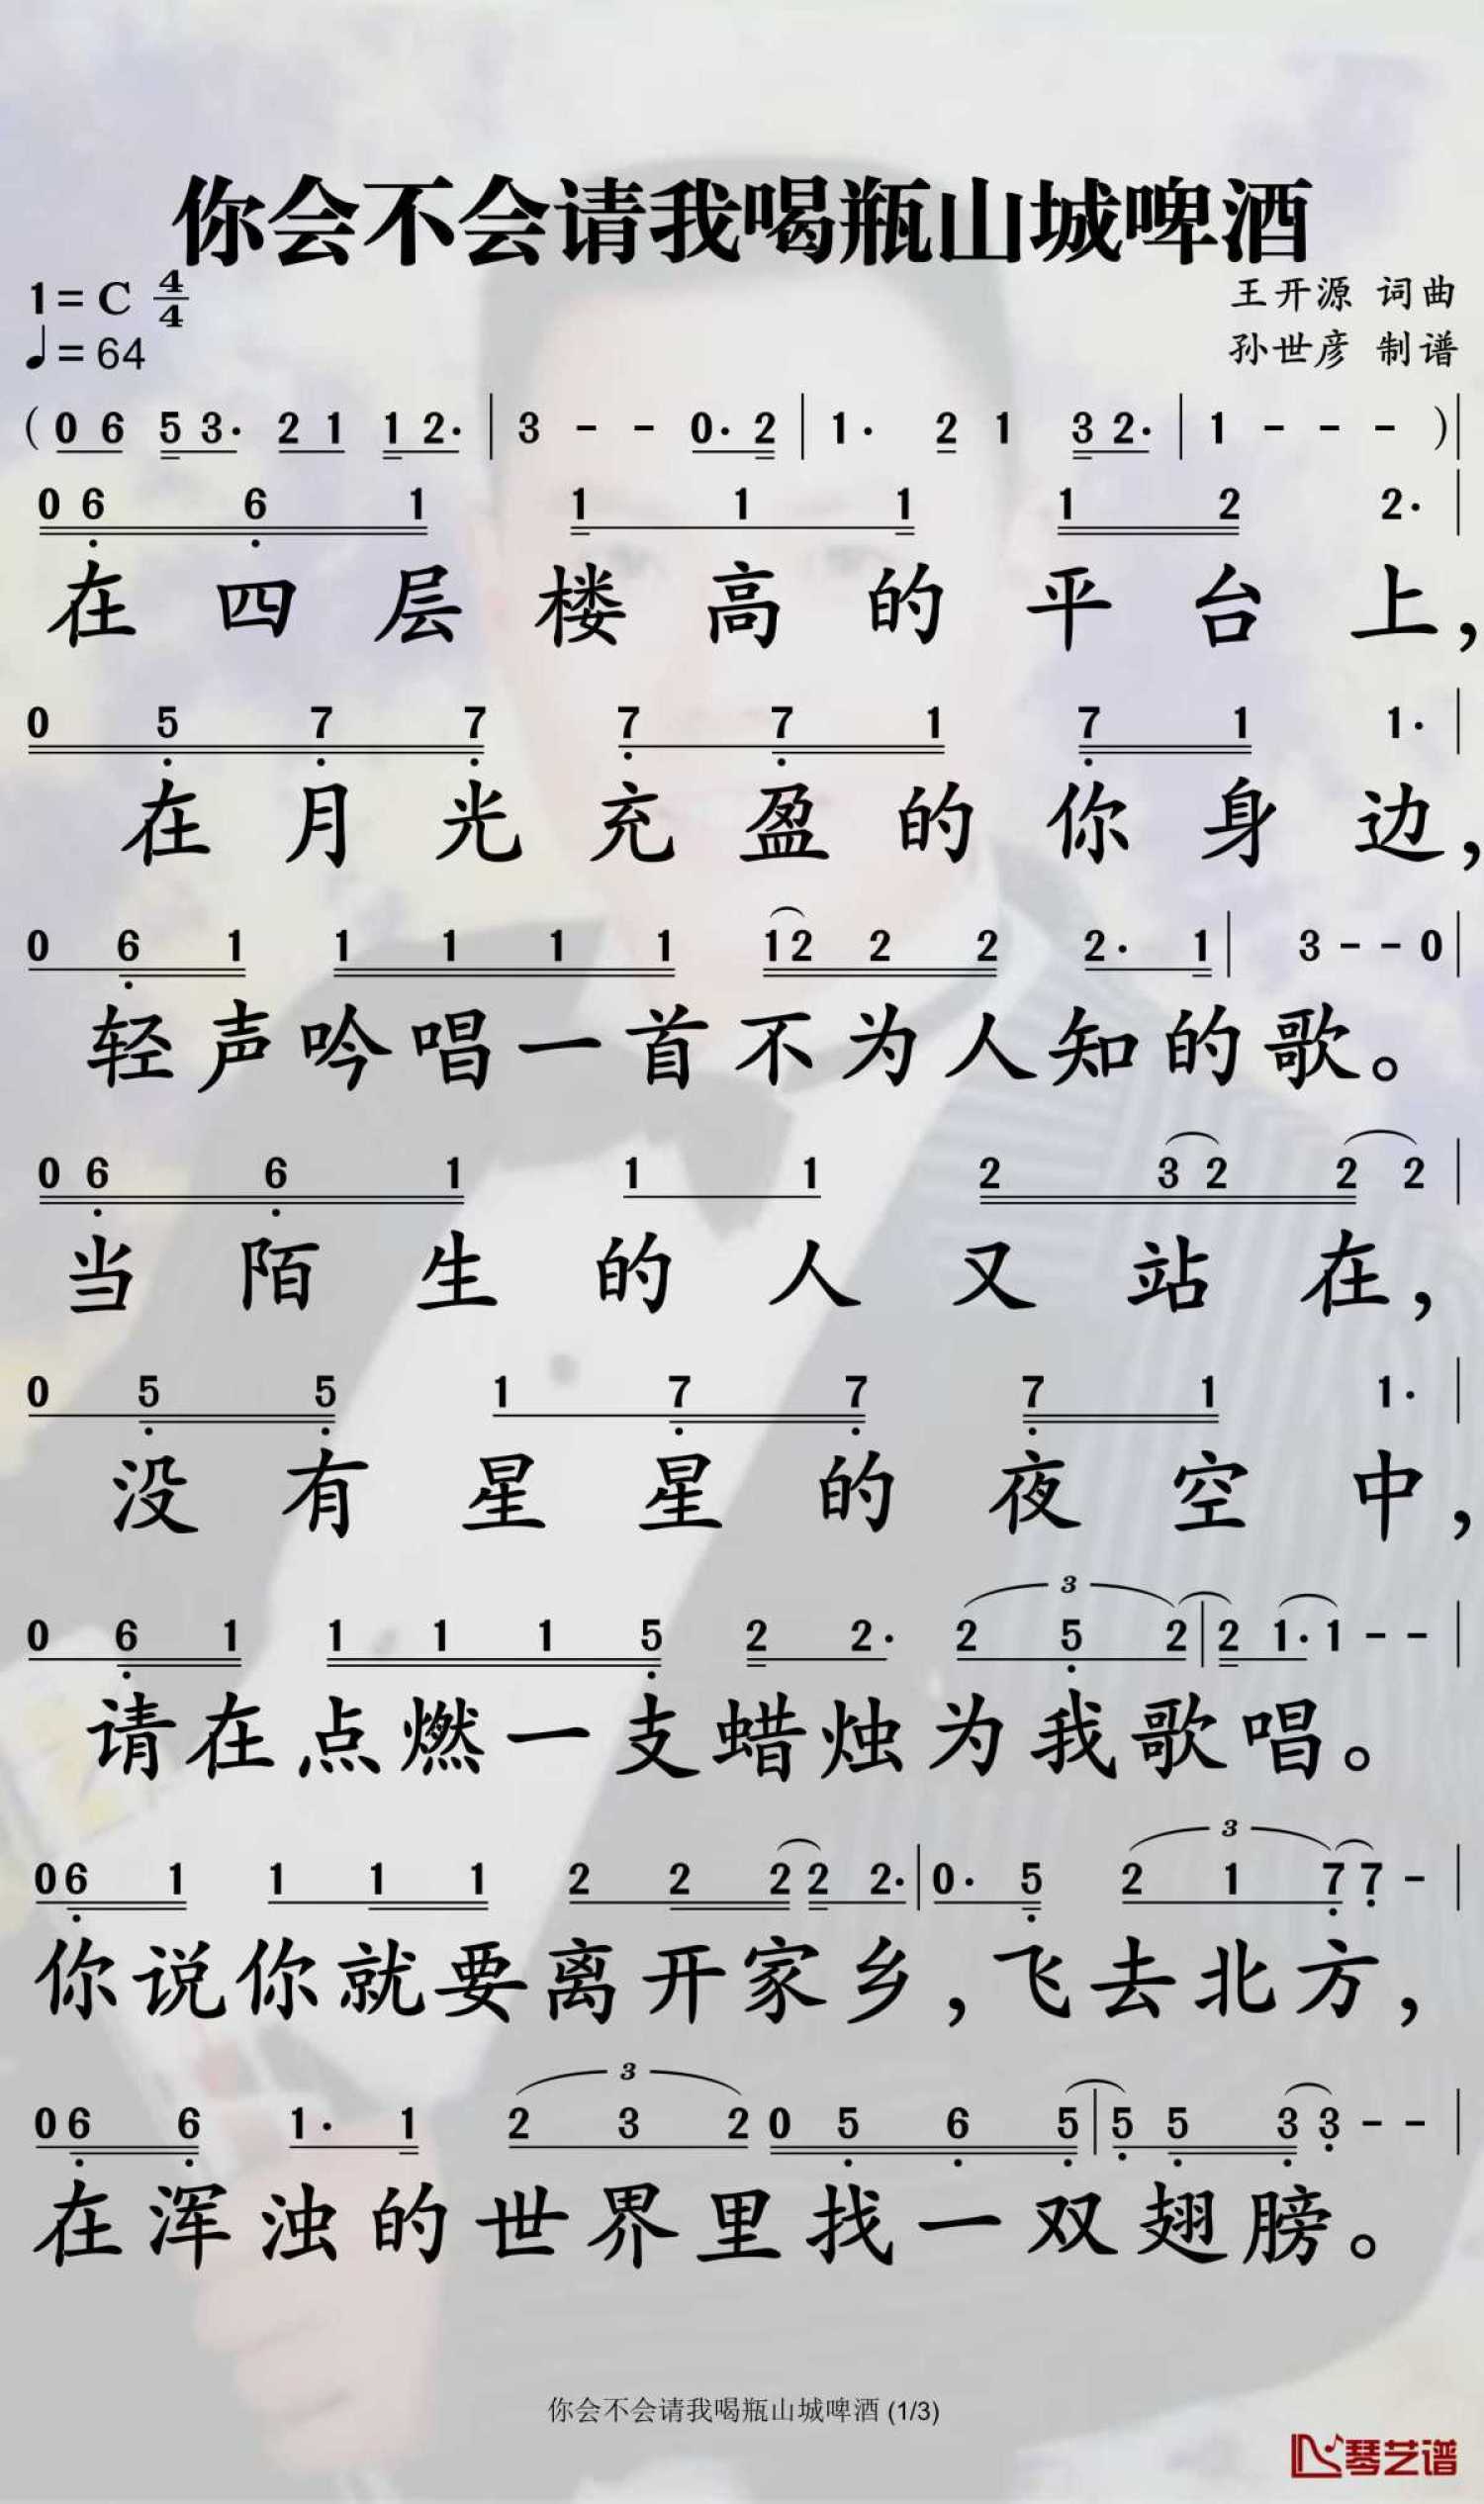 你会不会请我喝瓶山城啤酒
1=C 4/4
王开源 词曲
♩=64
孙世彦 制谱
( 0 6 5 3· 2 1 1 2· | 3 - - 0· 2 | 1· 2 1 3 2· | 1 - - - ) |
0 6 6 1 1 1 1 1 2 2· |
在四层楼高的平台上，
0 5 7 7 7 7 1 7 1 1· |
在月光充盈的你身边，
0 6 1 1 1 1 1 1 2 2 2 2· 1 | 3 - - 0 |
轻声吟唱一首不为人知的歌。
0 6 6 1 1 1 2 3 2 2 2 |
当陌生的人又站在，
0 5 5 1 7 7 7 1 1· |
没有星星的夜空中，
3
0 6 1 1 1 1 5 2 2· 2 5 2 | 2 1· 1 - - |
请在点燃一支蜡烛为我歌唱。
3
0 6 1 1 1 1 2 2 2 2 2· | 0· 5 2 1 7 7 - |
你说你就要离开家乡，飞去北方，
3
0 6 6 1· 1 2 3 2 0 5 6 5 | 5 5 3 3 - - |
在浑浊的世界里找一双翅膀。
你会不会请我喝瓶山城啤酒 (1/3)
琴艺谱